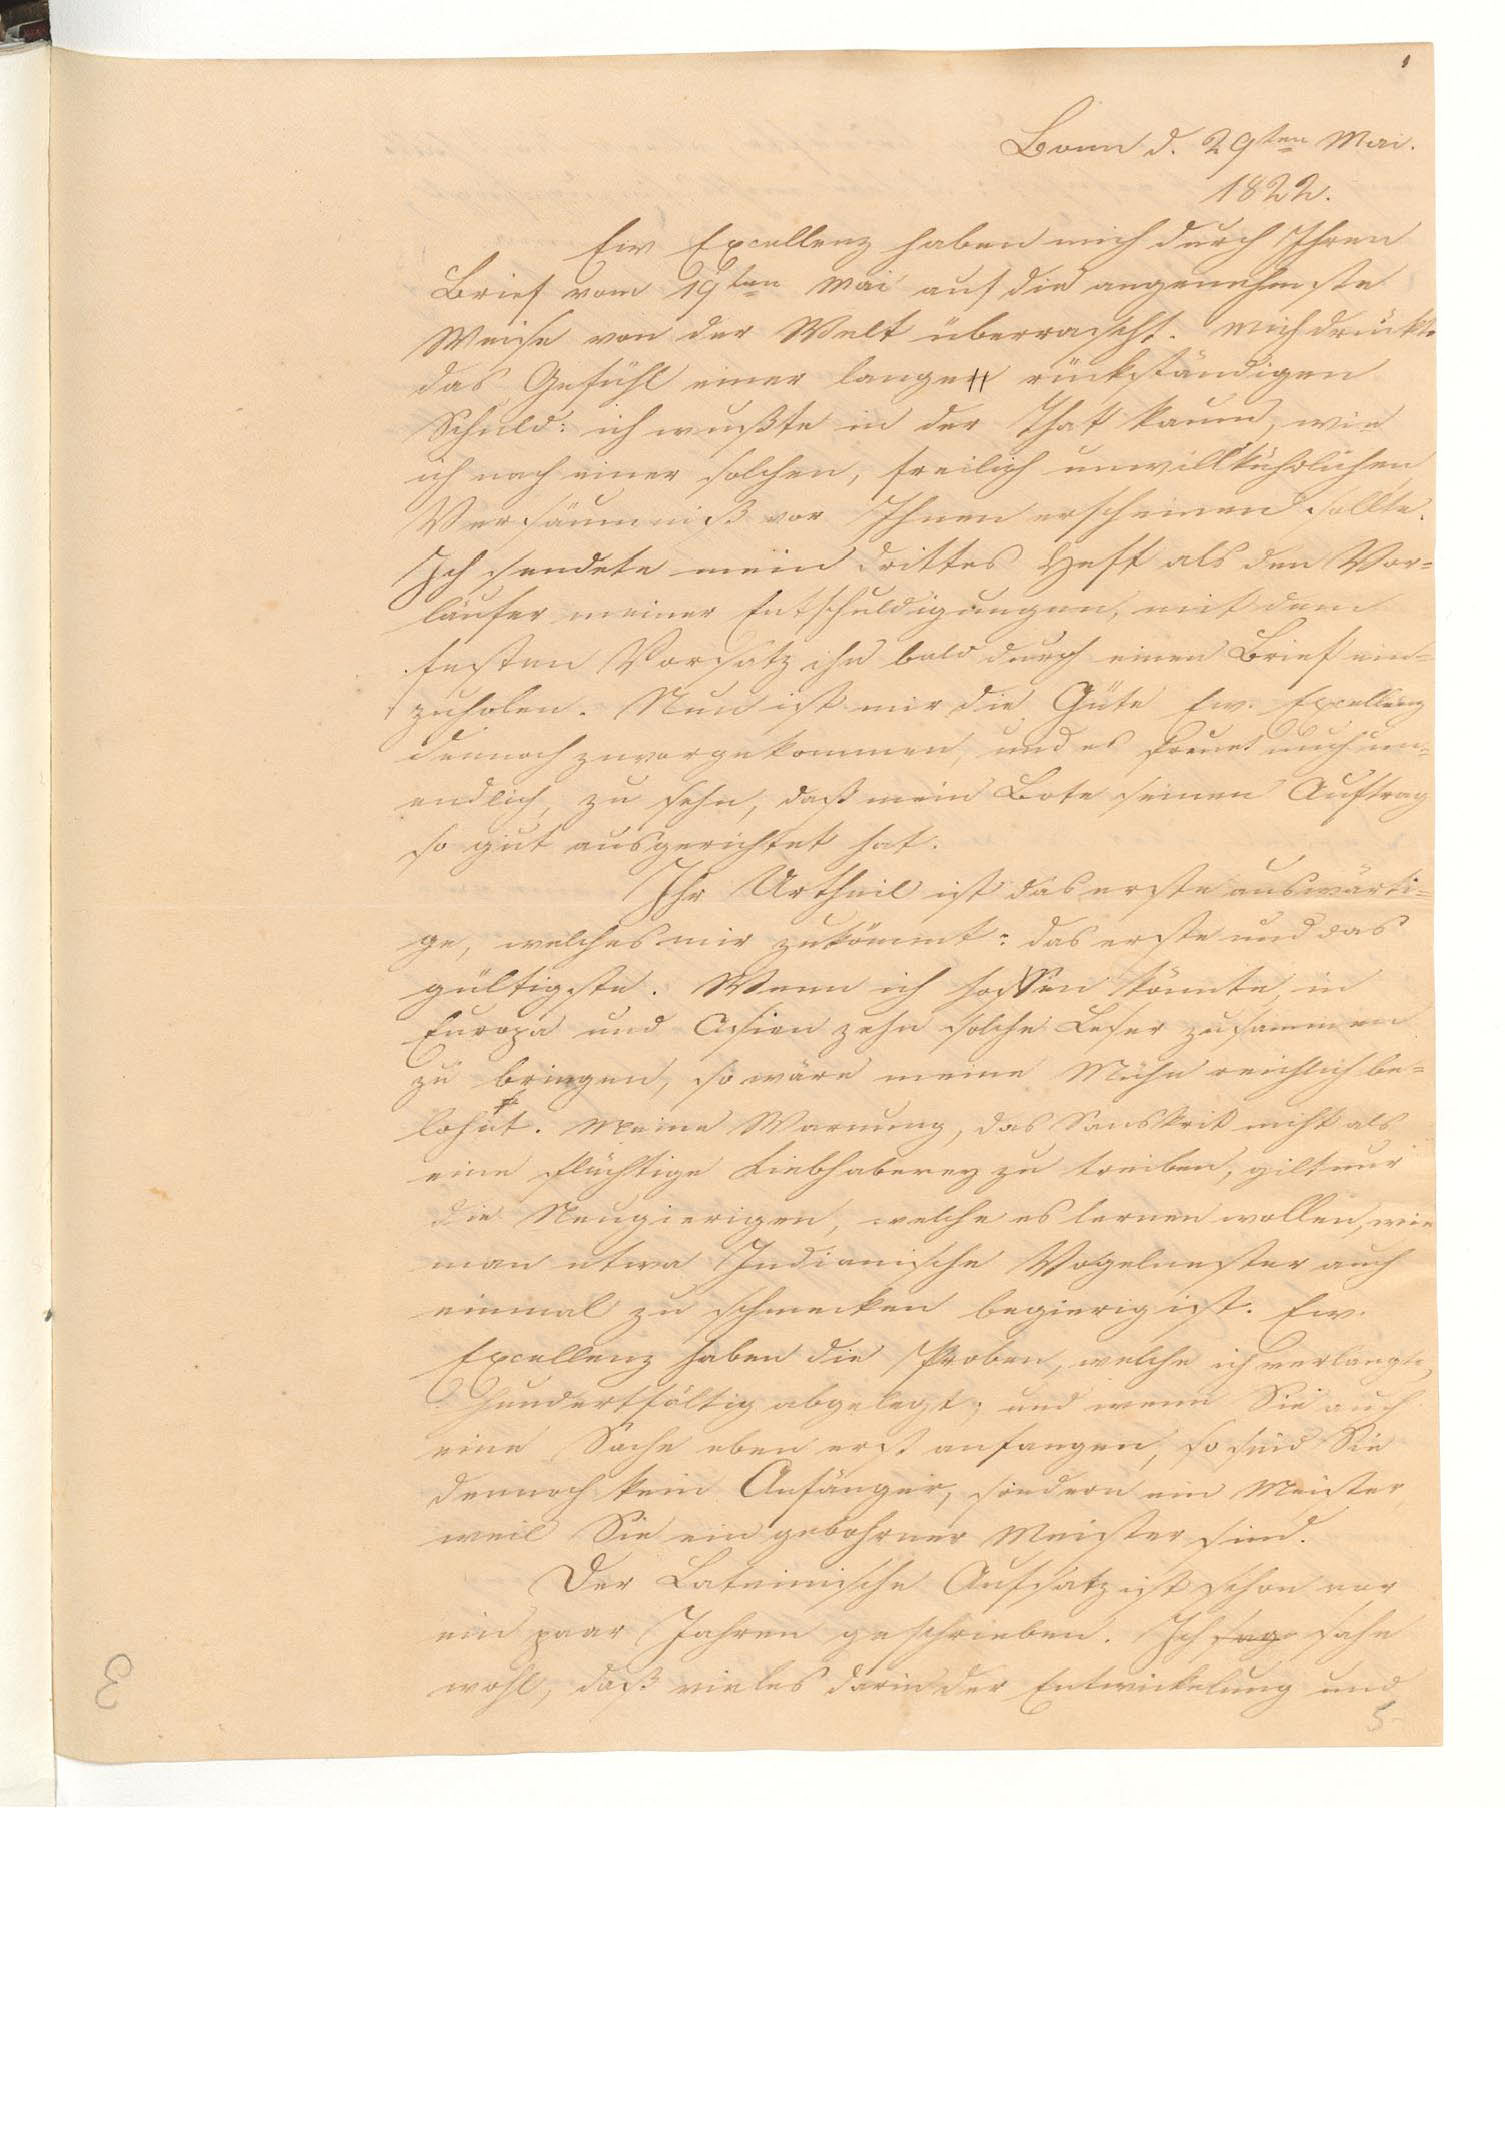 1
Bonn d. 29ten Mai.
1822.
Ew Excellenz haben mich durch Ihren
Brief vom 19ten Mai auf die angenehmste
Weise von der Welt überrascht. Mich drückte
das Gefühl einer lange rückständigen
Schuld: ich wußte in der That kaum, wie
ich nach einer solchen, freilich unwillkührlichen
Versäumniß vor Ihnen erscheinen sollte.
Ich sendete mein drittes Heft als den Vor=
läufer meiner Entschuldigungen, mit dem
festen Vorsatz ihn bald durch einen Brief ein=
zuholen. Nun ist mir die Güte Ew. Excellenz
dennoch zuvorgekommen, und es freuet mich un=
endlich, zu sehn, daß mein Bote seinen Auftrag
so gut ausgerichtet hat.
Ihr Urtheil ist das erste auswärti=
ge, welches mir zukömmt: das erste und das
gültigste. Wenn ich hoffen könnte, in
Europa und Asien zehn solche Leser zusammen
zu bringen, so wäre meine Mühe reichlich be=
lohnt. Meine Warnung, das Sanskrit nicht als
eine flüchtige Liebhaberey zu treiben, gilt nur
die Neugierigen, welche es lernen wollen, wie
man etwa Indianische Vogelnester auch
einmal zu schmecken begierig ist. Ew.
Excellenz haben die Proben, welche ich verlangte,
hundertfältig abgelegt; und wenn Sie auch
eine Sache eben erst anfangen, so sind Sie
dennoch kein Anfänger, sondern ein Meister,
weil Sie ein gebohrner Meister sind.
Der Lateinische Aufsatz ist schon vor
ein paar Jahren geschrieben. Ich sag sahe
wohl, daß vieles darin der Entwickelung und
5
3